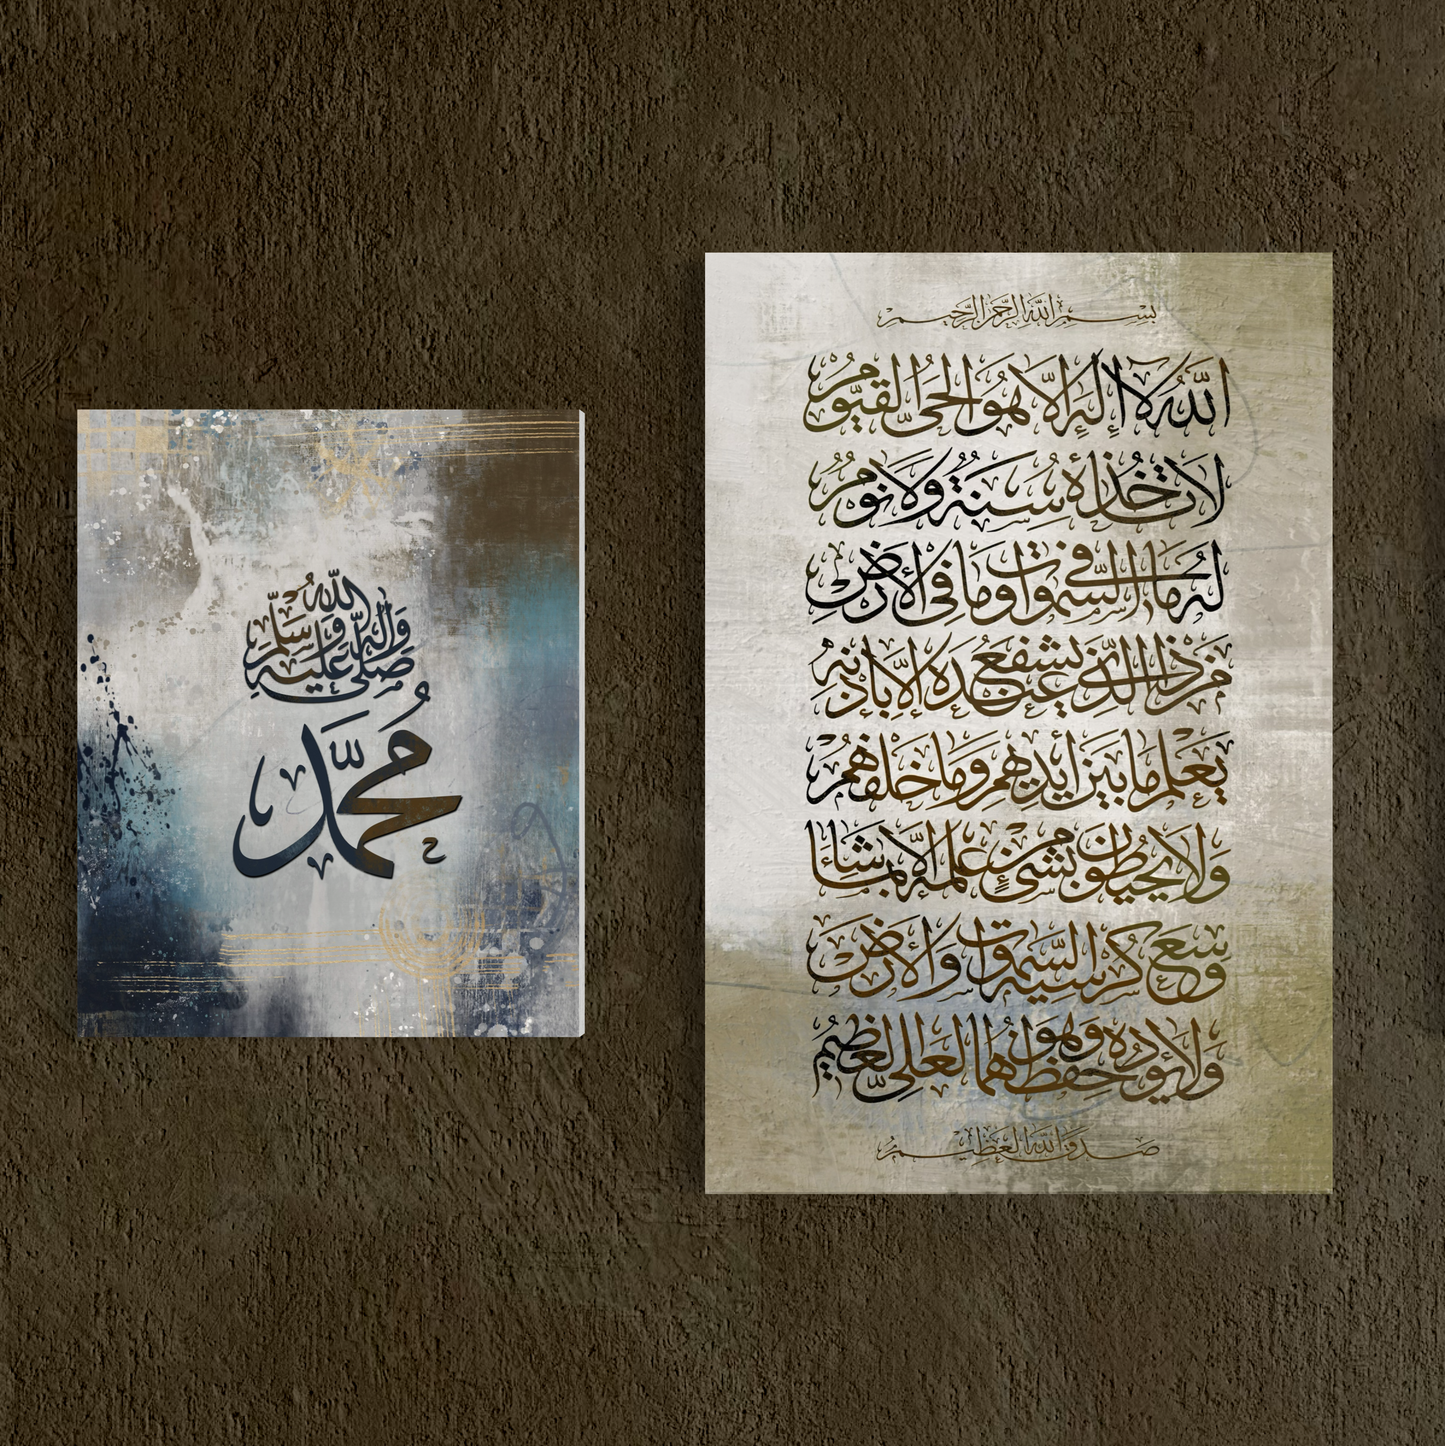 صلى الله عليه وآله وسلم
محمد
بسم الله الرحمن الرحيم
الله لا إله إلا هو الحي القيوم
لا تأخذه سنة ولا نوم
له ما في السموات وما في الأرض
من ذا الذي يشفع عنده إلا بإذنه
يعلم ما بين أيديهم وما خلفهم
ولا يحيطون بشيء من علمه إلا بما شاء
وسع كرسيه السموات والأرض
ولا يؤده حفظهما وهو العلي العظيم
صدق الله العظيم